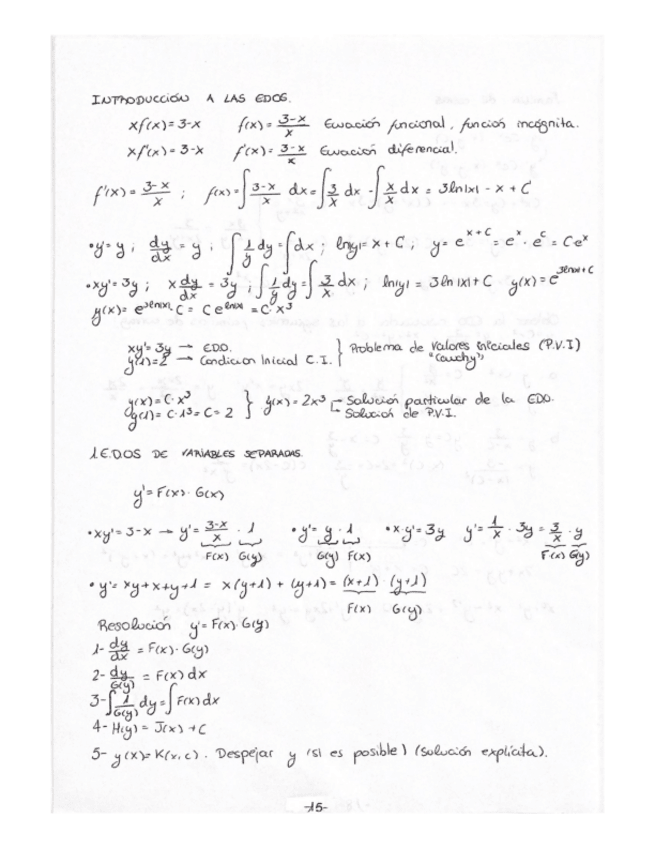 INTRODUCCIÓN A LAS EDOS.
xf(x)=3-x   f(x)= (3-x)/x   Ecuación funcional, función incógnita.
xf'(x)=3-x   f'(x)= (3-x)/x   Ecuación diferencial.
f'(x)= (3-x)/x ; f(x)=∫ (3-x)/x dx = ∫ 3/x dx - ∫ x/x dx = 3ln|x| - x + C
• y'=y ; dy/dx = y ; ∫ 1/y dy = ∫ dx ; ln|y|= x + C ; y= e^(x+C) = e^x · e^C = C e^x
• xy'=3y ; x dy/dx = 3y ; ∫ 1/y dy = ∫ 3/x dx ; ln|y| = 3 ln|x|+C   y(x)= e^(3ln|x|+C)
y(x)= e^(3ln|x|) · C = C e^(ln|x|) = C·x³
xy'=3y → EDO. } Problema de valores iniciales (P.V.I)
y(1)=2 → Condición Inicial C.I. "Cauchy"
y(x)=C·x³ } y(x)=2x³ Solución particular de la EDO.
y(1)=C·1³=C=2 Solución de P.V.I.
1.E.DOS DE VARIABLES SEPARADAS.
y'=F(x)·G(x)
• xy'=3-x → y'= (3-x)/x · 1   • y'= y · 1   • x·y'=3y   y'= 1/x · 3y = 3/x · y
F(x) G(y)   G(y) F(x)   F(x) G(y)
• y'= xy+x+y+1 = x(y+1) + (y+1)= (x+1) (y+1)
F(x) G(y)
Resolución y'=F(x)·G(y)
1- dy/dx = F(x)·G(y)
2- dy/G(y) = F(x) dx
3- ∫ 1/G(y) dy = ∫ F(x) dx
4- H(y) = J(x) + C
5- y(x)=K(x,c). Despejar y (si es posible) (solución explícita).
-15-